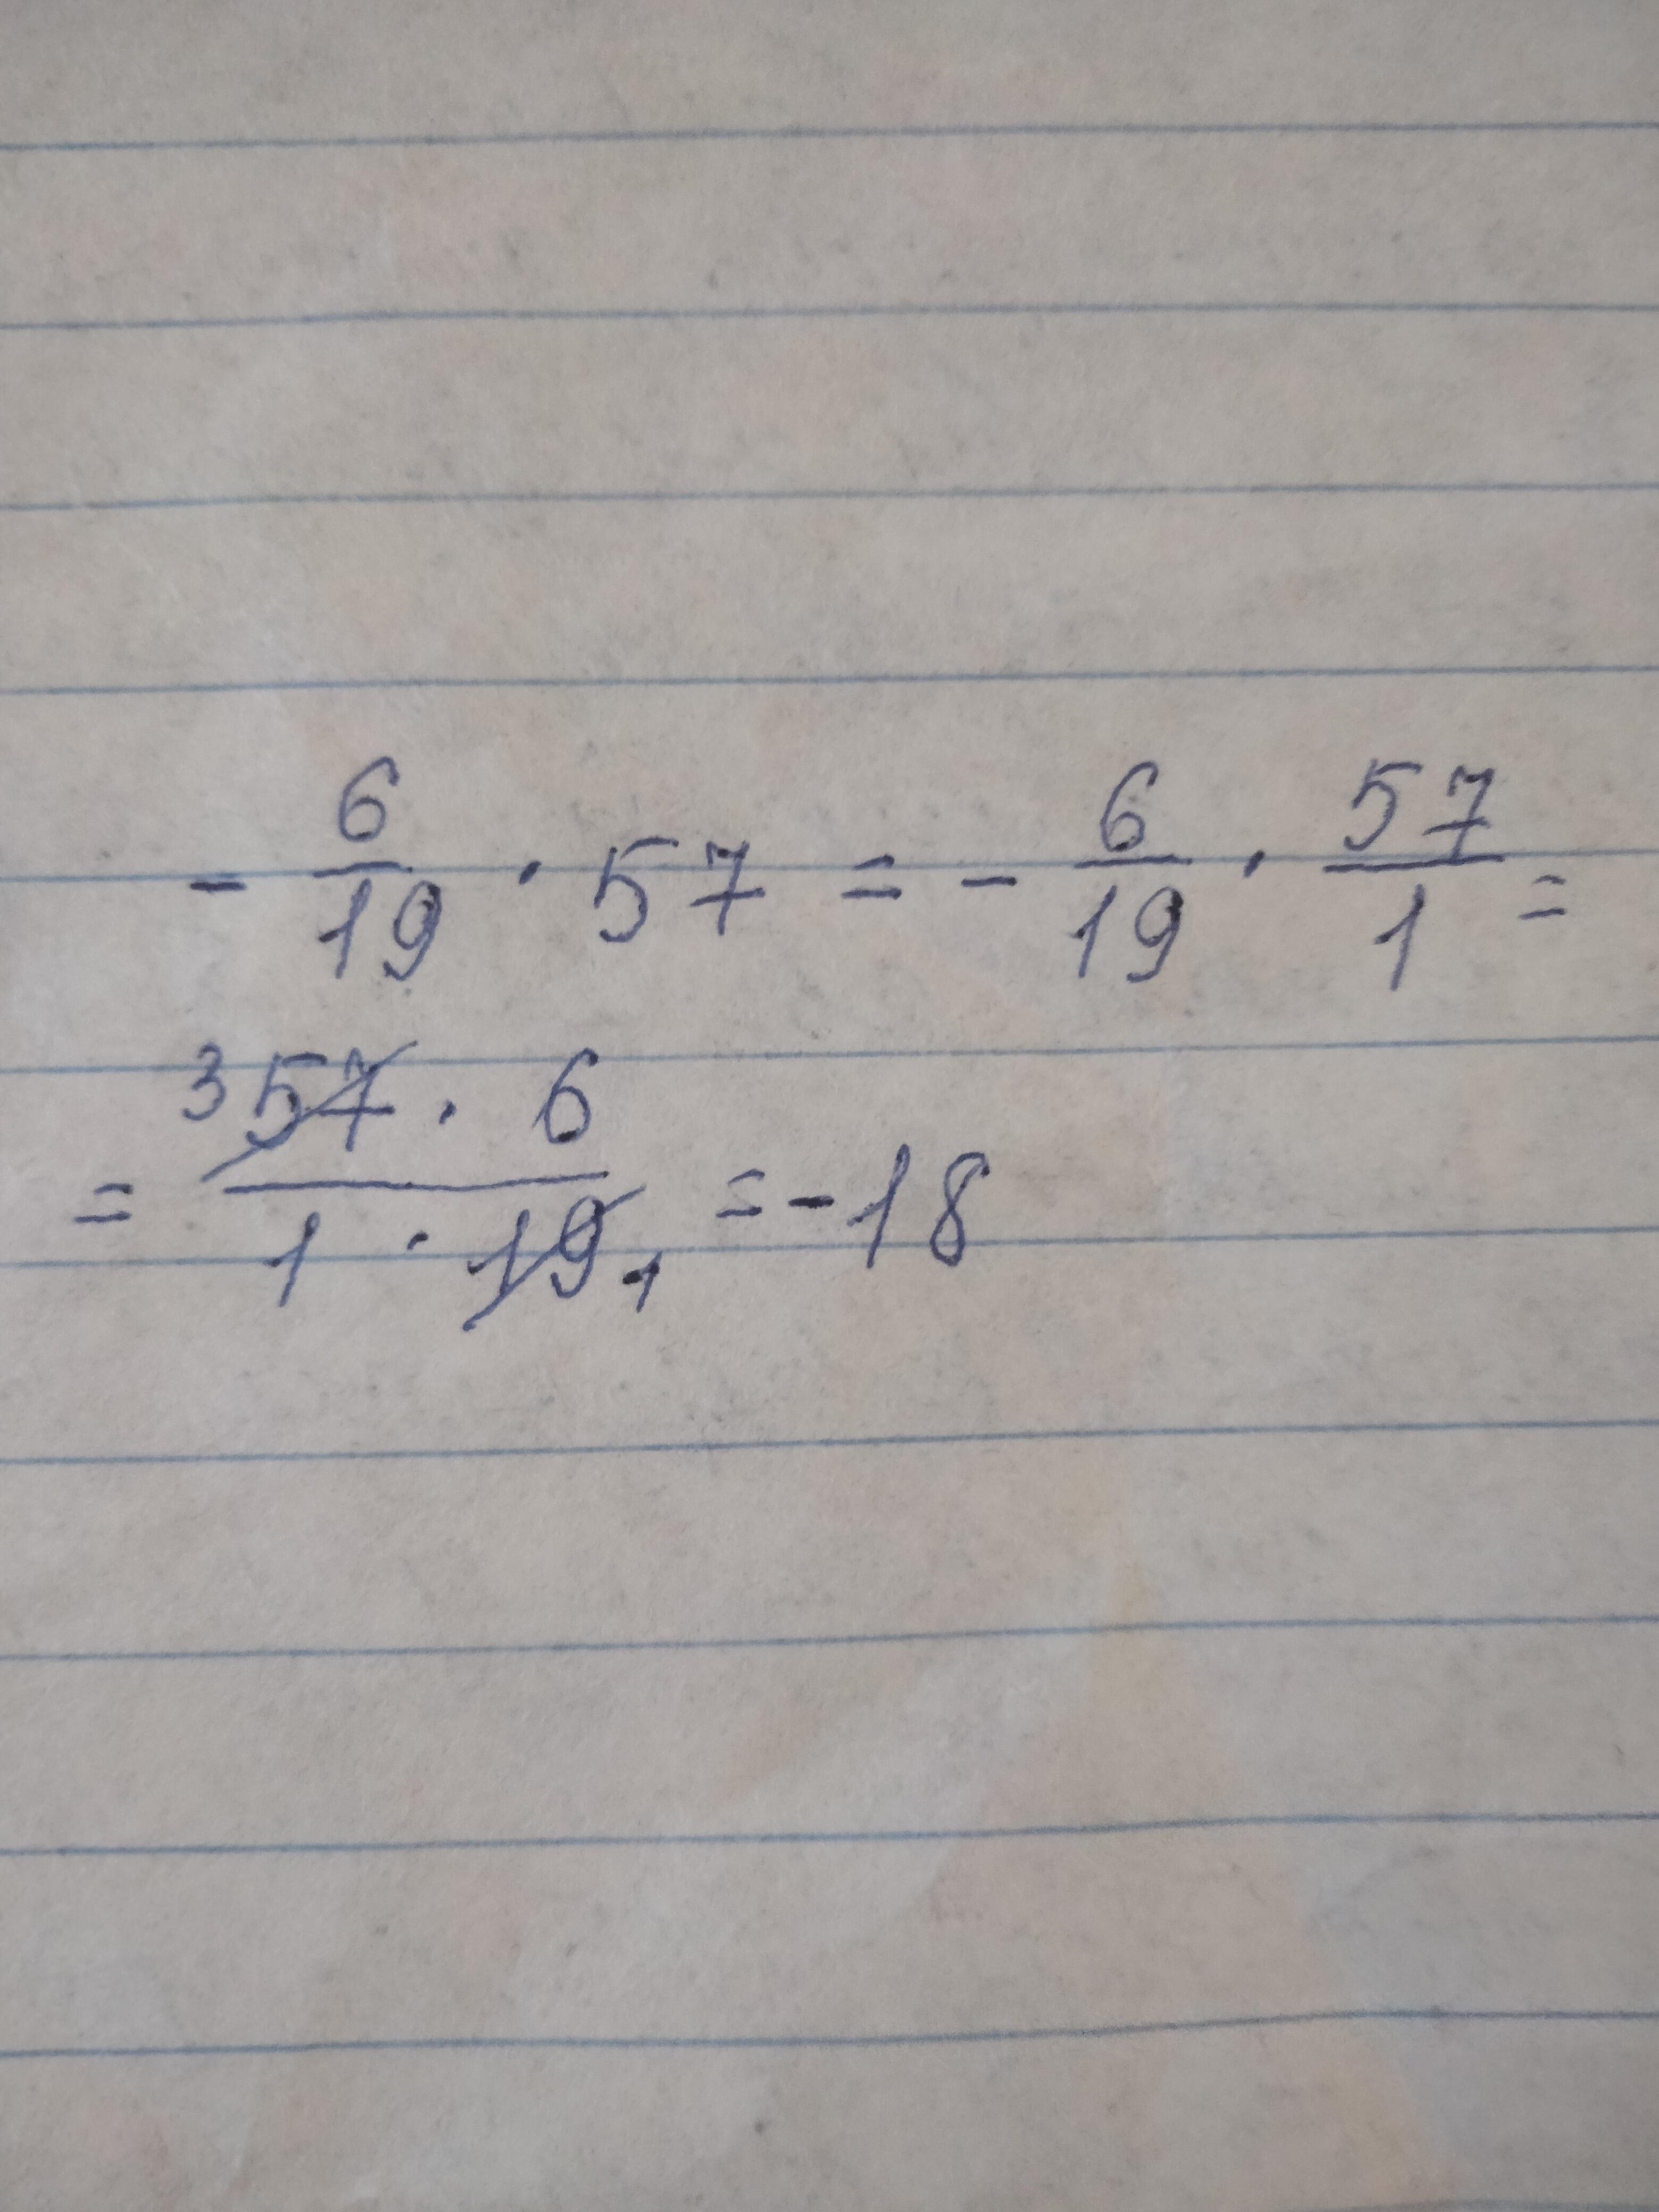 - 6/19 · 57 = - 6/19 · 57/1 =
= 3 57 · 6 / 1 · 19 1 = - 18